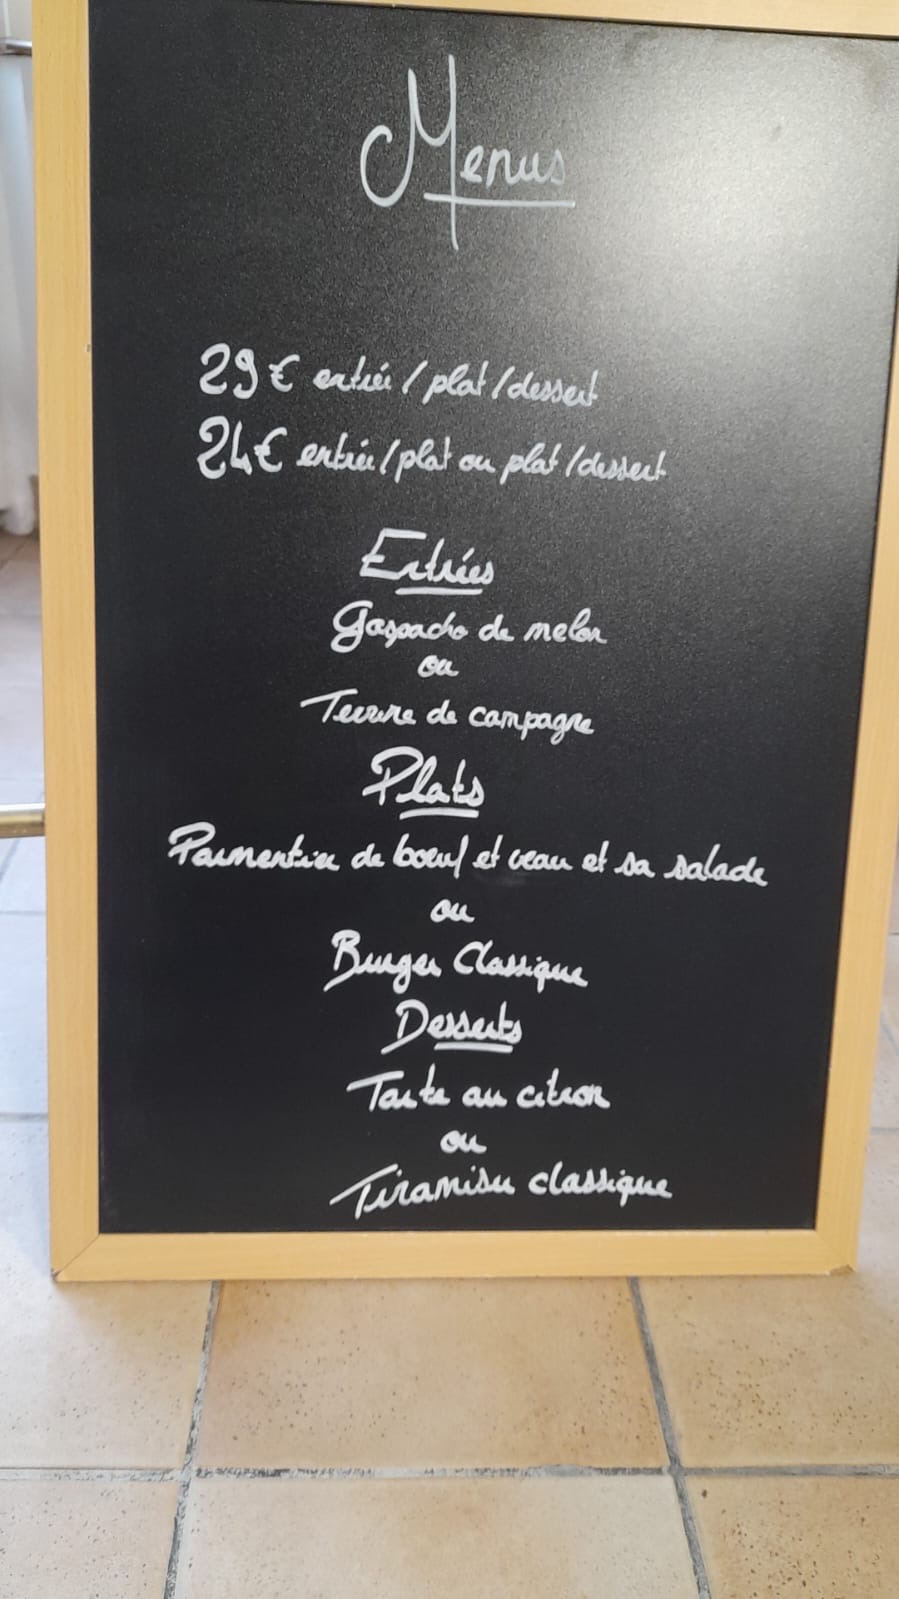 Menus
29€ entrée / plat / dessert
24€ entrée / plat ou plat / dessert
Entrées
Gaspacho de melon
ou
Terrine de campagne
Plats
Parmentier de boeuf et veau et sa salade
ou
Burger Classique
Desserts
Tarte au citron
ou
Tiramisu classique